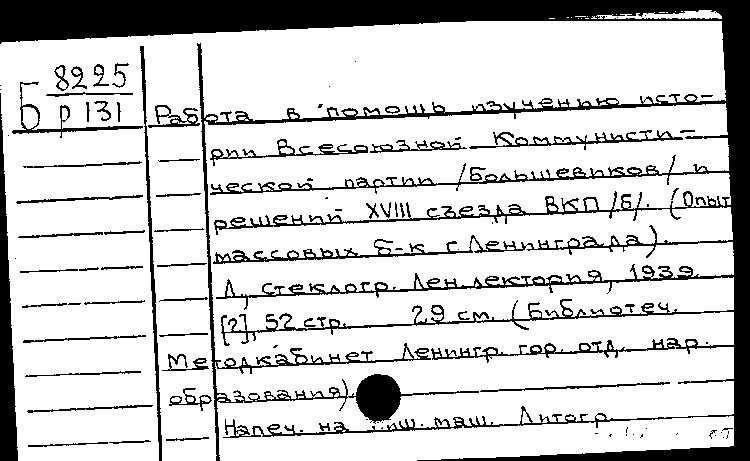 Б 8225
р 131
Работа в помощь изучению исто-
рии Всесоюзной Коммунисти-
ческой партии /большевиков/ и
решений XVIII съезда ВКП/б/. (Опыт
массовых б-к г. Ленинграда).
Л., стеклогр. Лен. лектория, 1939.
[2], 52 стр. 29 см. (Библиотеч.
Методкабинет Ленингр. гор. отд. нар.
образования).
Напеч. на пиш. маш. Литогр.